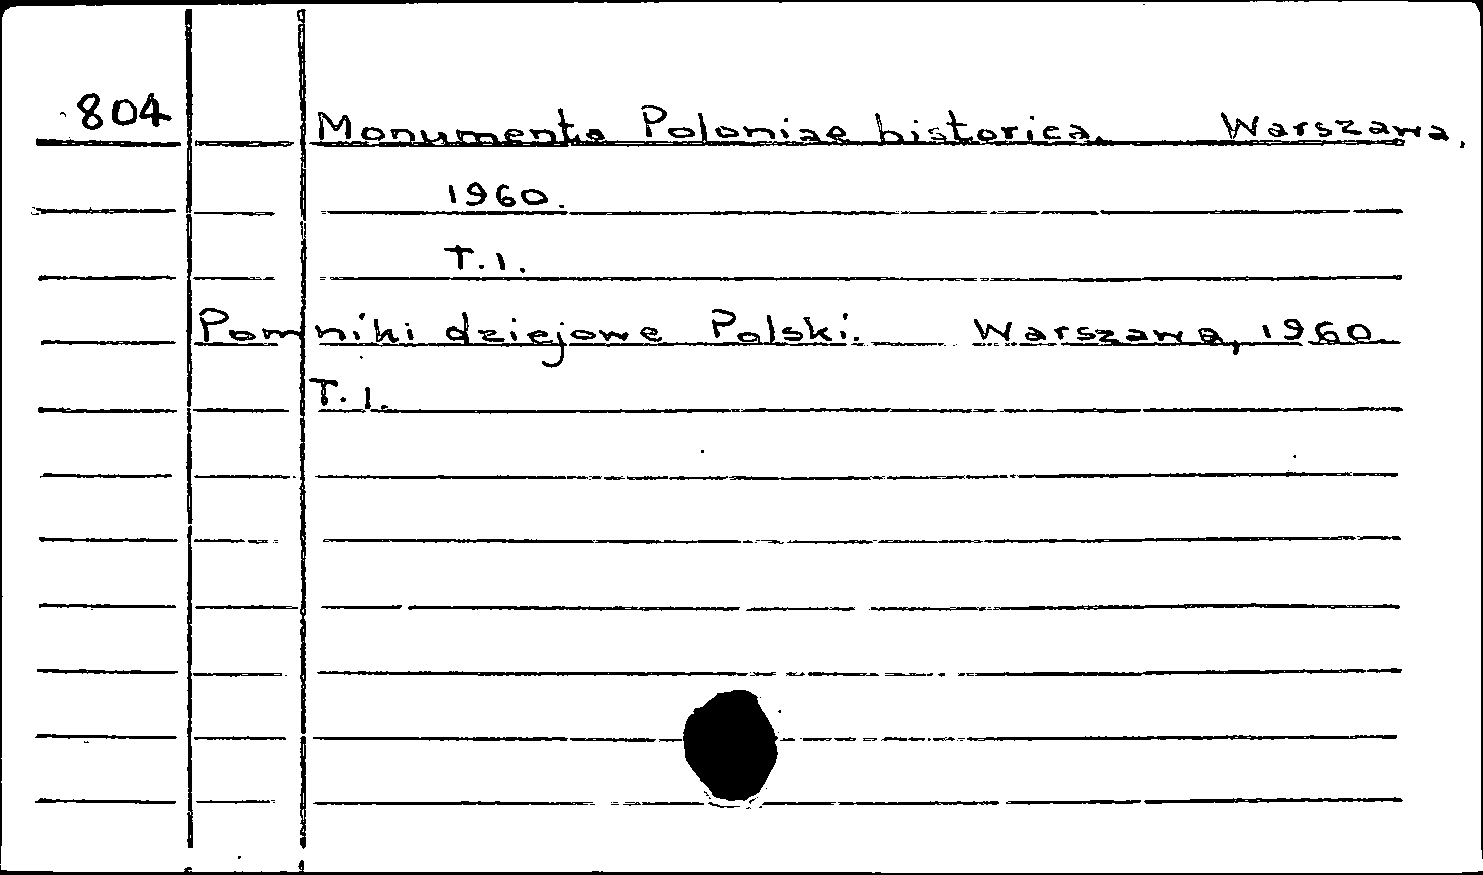 804 Monumenta Poloniae historica. Warszawa,
1960.
T.1.
Pomniki dziejowe Polski. Warszawa, 1960.
T.1.